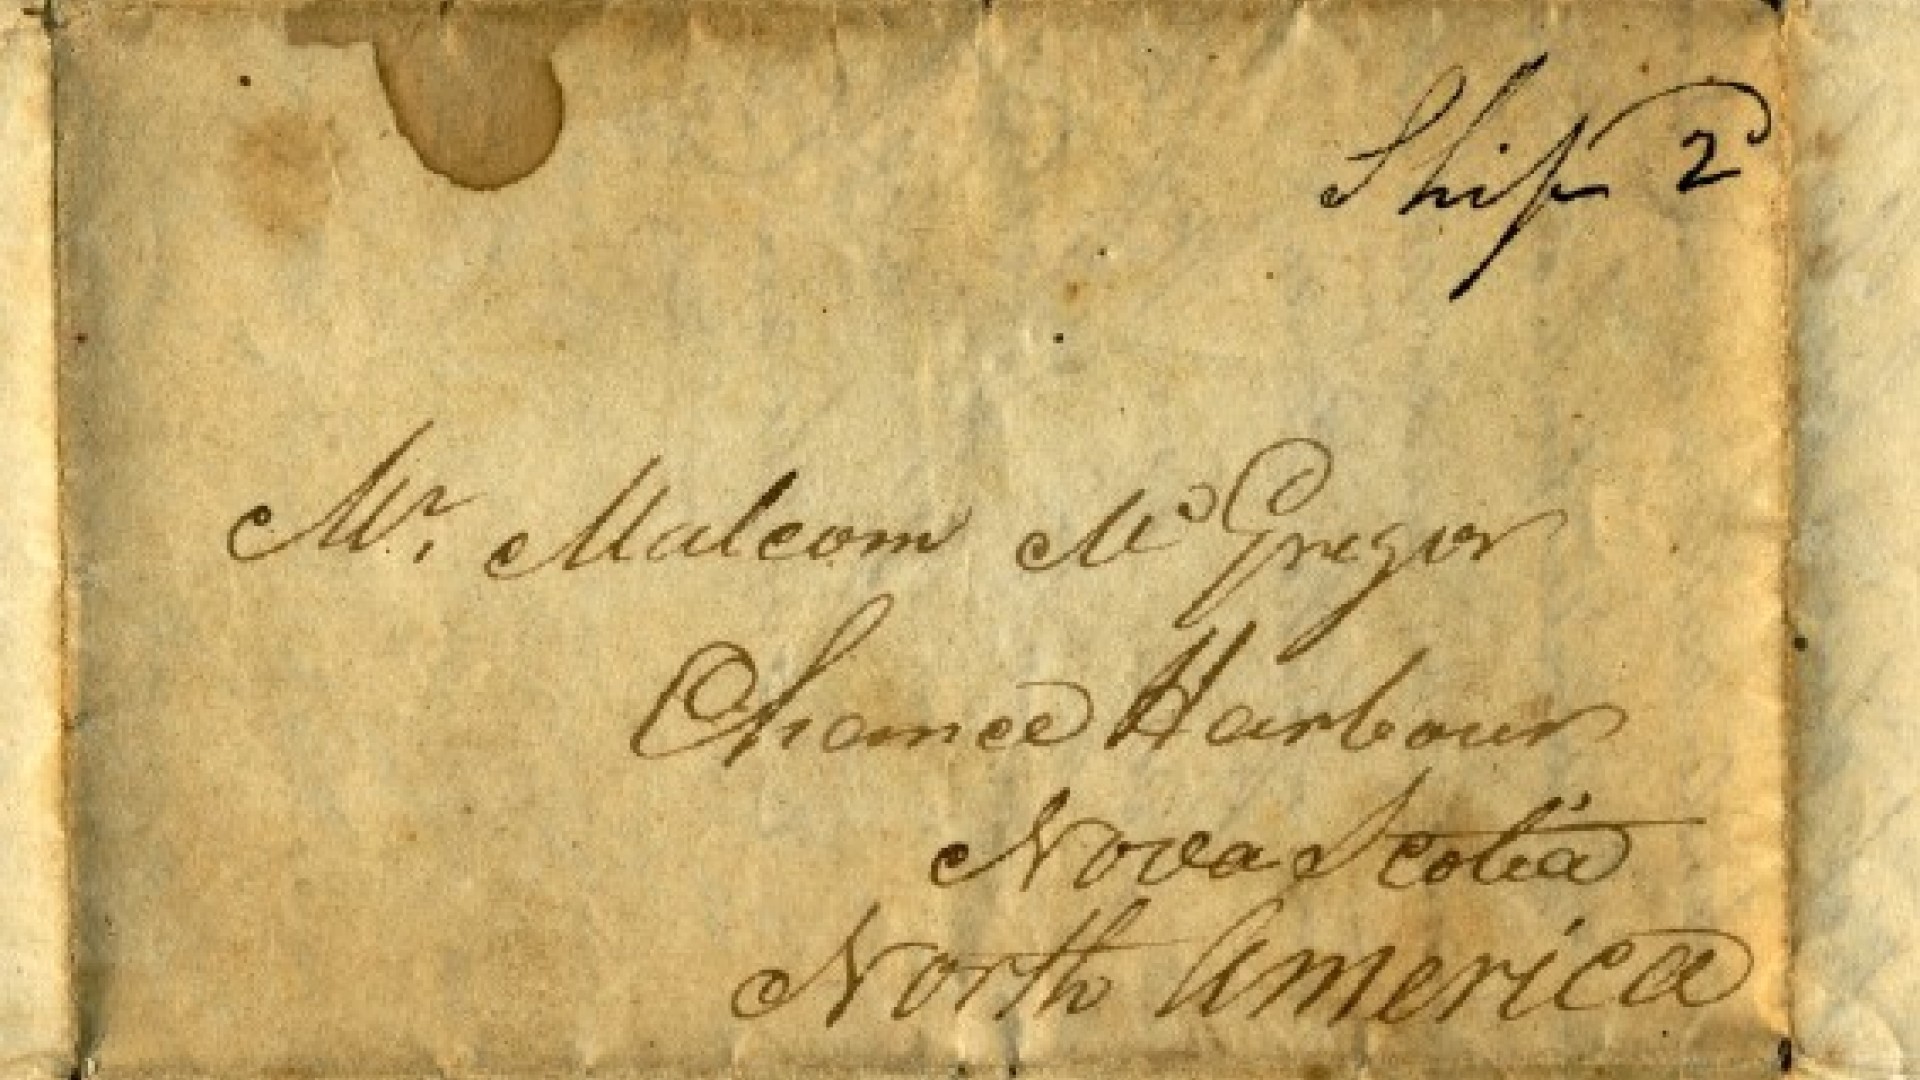 Ship 2
Mr. Malcom Mc Gregor
Chance Harbour
Nova Scotia
North America